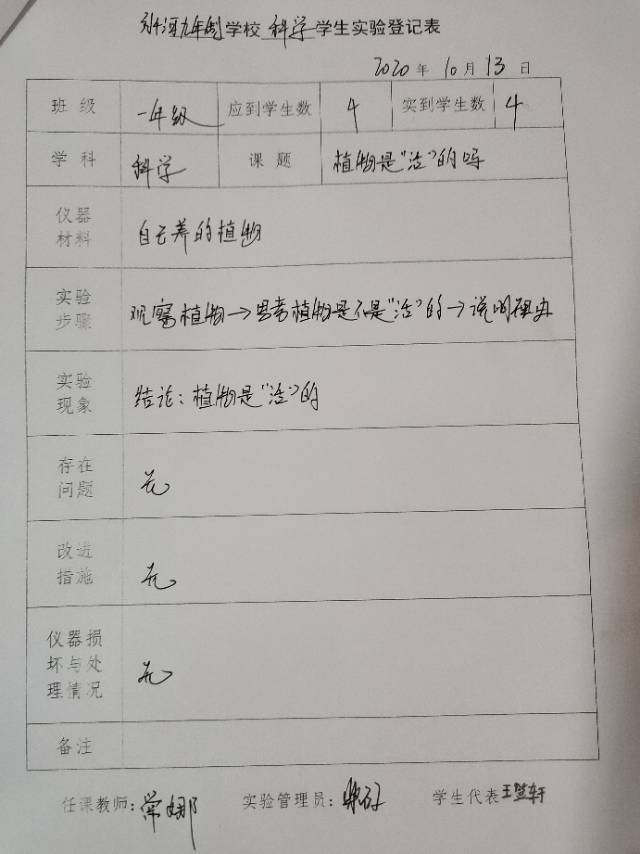 九年制学校科学学生实验登记表
2020年10月13日
班级 一年级 应到学生数 4 实到学生数 4
学科 科学 课题 植物是“活”的吗
仪器材料 自己养的植物
实验步骤 观察植物→思考植物是不是“活”的→说明理由
实验现象 结论:植物是“活”的
存在问题 无
改进措施 无
仪器损坏与处理情况 无
备注
任课教师:常娜 实验管理员: 学生代表 王竺轩